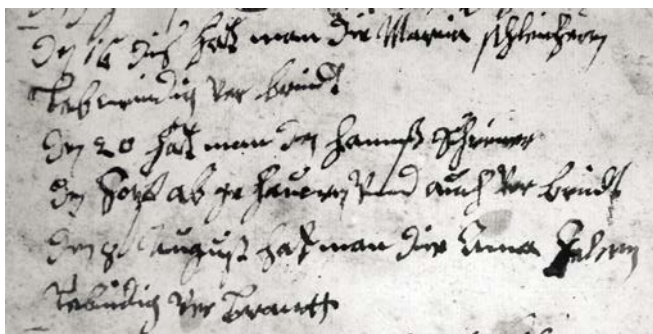 den 16 dis hatt man die Maria schleicherin
lebwendig ver brindt
den 20 hatt man den hannß Schreiner
den Kopf ab ge hauwen und auch ver brindt
den 8 August hatt man die Anna
lebndig ver brantt